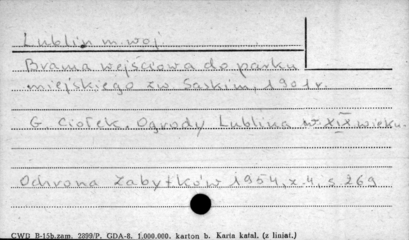 Lublin m. woj
Brama wejściowa do parku
miejskiego zw Saskim, 1901r.
G. Ciołek. Ogrody Lublina w XIX wieku.
Ochrona Zabytków 1954, z. 4, s 269
CWD B-15b.zam. 2899/P. GDA-8. 1.000.000. karton b. Karta katal. (z liniat.)